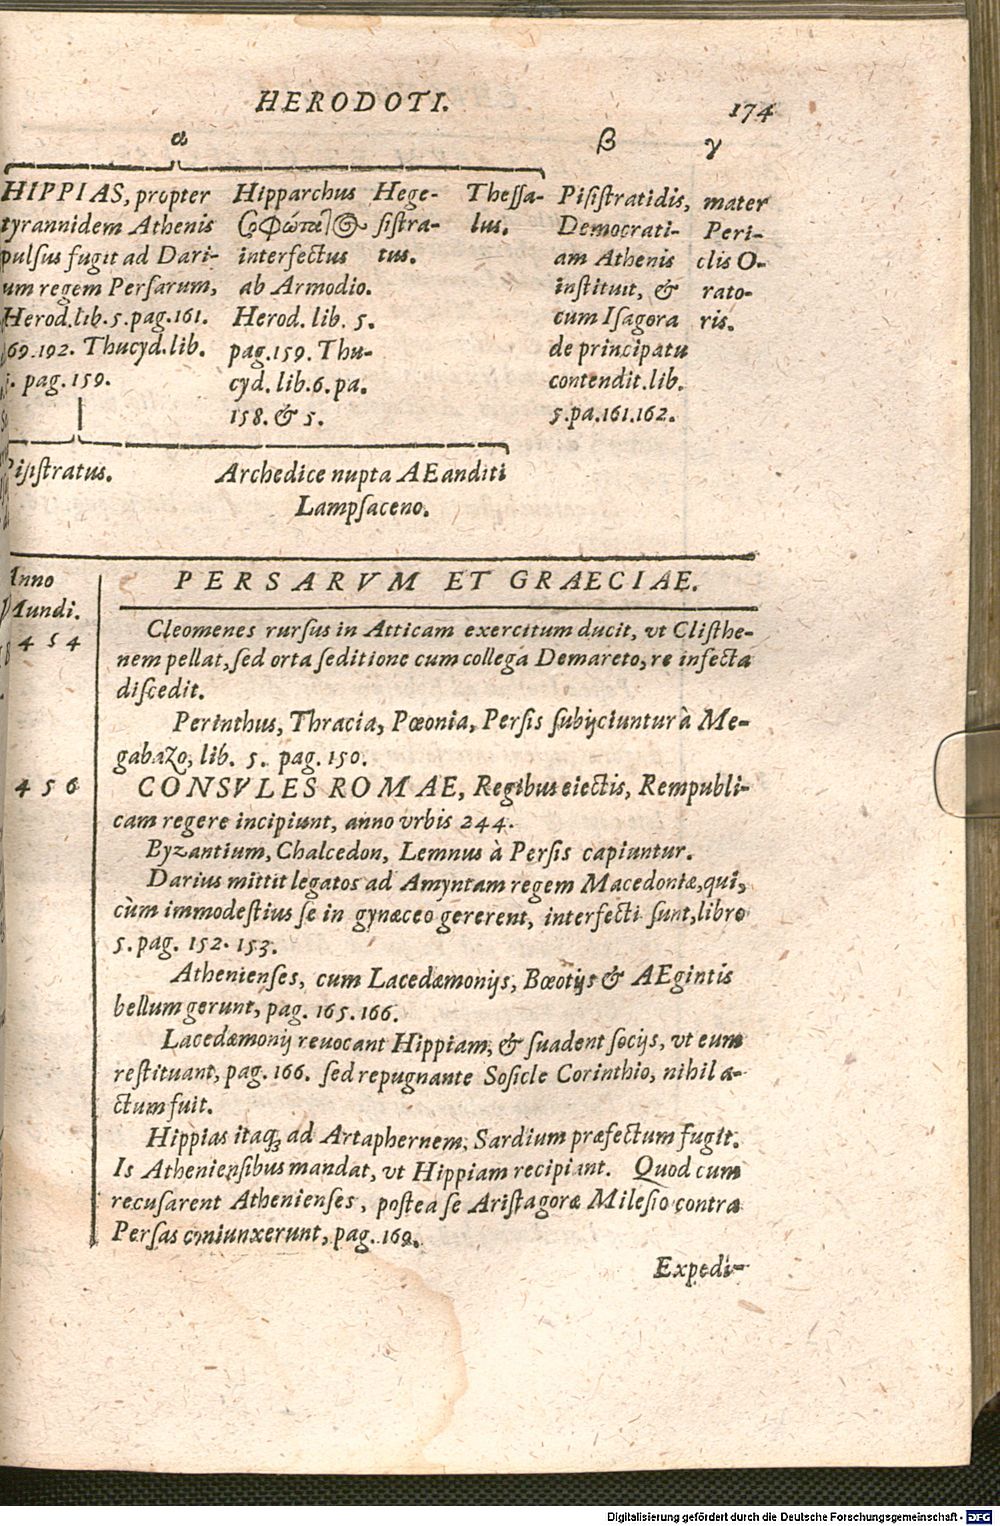 HERODOTI.
174
α
β
γ
HIPPIAS, propter
tyrannidem Athenis
pulsus fugit ad Dari-
um regem Persarum,
Herod.lib.5.pag.161.
69.192. Thucyd.lib.
pag.159.
Hipparchus
interfectus
ab Armodio.
Herod. lib. 5.
pag.159. Thu-
cyd. lib.6.pa.
158. & 5.
Hege-
sistra-
tus.
Thessa-
lus.
Pisistratidis,
Democrati-
am Athenis
instituit, &
cum Isagora
de principatu
contendit.lib.
5.pa.161.162.
mater
Peri-
clis O-
rato-
ris.
Pisistratus.
Archedice nupta AEanditi
Lampsaceno.
Anno
Mundi.
PERSARVM ET GRAECIAE.
454
Cleomenes rursus in Atticam exercitum ducit, vt Clisthe-
nem pellat, sed orta seditione cum collega Demareto, re infecta
discedit.
Perinthus, Thracia, Pœonia, Persis subijciuntur à Me-
gabazo, lib. 5. pag. 150.
456
CONSVLES ROMAE, Regibus eiectis, Rempubli-
cam regere incipiunt, anno vrbis 244.
Byzantium, Chalcedon, Lemnus à Persis capiuntur.
Darius mittit legatos ad Amyntam regem Macedoniæ, qui,
cùm immodestius se in gynæceo gererent, interfecti sunt, libro
5. pag. 152. 153.
Athenienses, cum Lacedæmonijs, Bœotijs & AEgintis
bellum gerunt, pag. 165. 166.
Lacedæmonij reuocant Hippiam, & suadent socijs, vt eum
restituant, pag. 166. sed repugnante Sosicle Corinthio, nihil a-
ctum fuit.
Hippias itaq; ad Artaphernem, Sardium præfectum fugit.
Is Atheniensibus mandat, vt Hippiam recipiant. Quod cum
recusarent Athenienses, postea se Aristagoræ Milesio contra
Persas coniunxerunt, pag. 169.
Expedi-
Digitalisierung gefördert durch die Deutsche Forschungsgemeinschaft - DFG